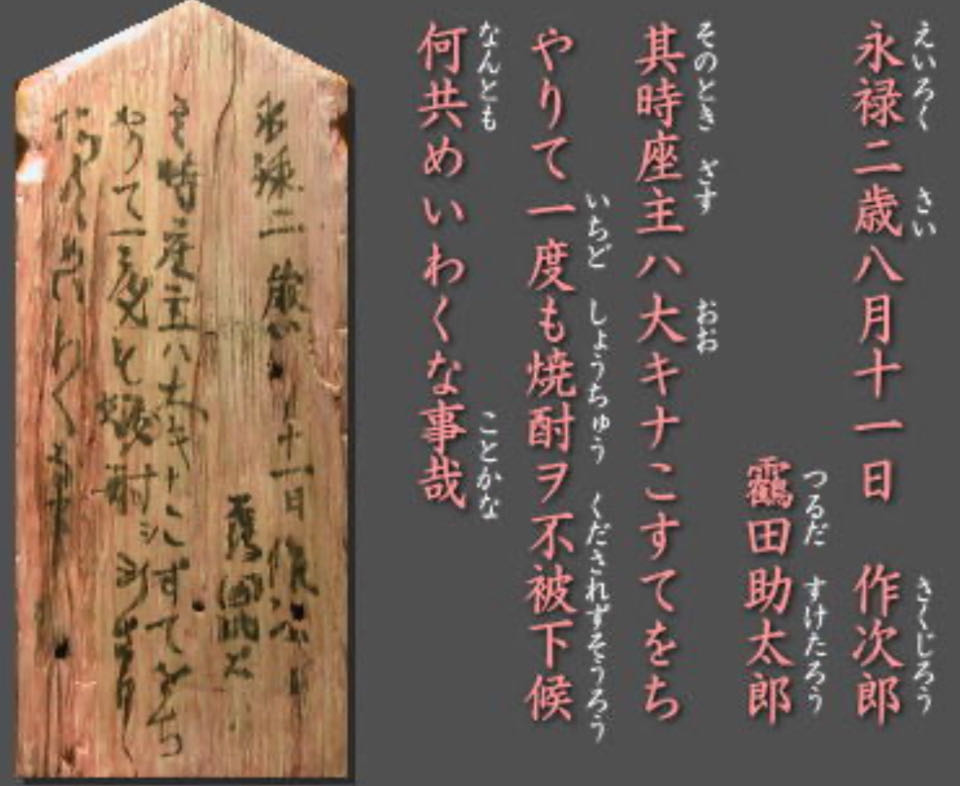 えいろく さい さくじろう
永禄二歳八月十一日 作次郎
つるだ すけたろう
靏田助太郎
そのとき ざす おお
其時座主ハ大キナこすてをち
いちど しょうちゅう くだされずそうろう
やりて一度も焼酎ヲ不被下候
なんとも ことかな
何共めいわくな事哉
永禄二歳八月十一日 作次郎
靏田助太郎
其時座主ハ大キナこすてをち
やりて一度も焼酎ヲ不被下候
何共めいわくな事哉